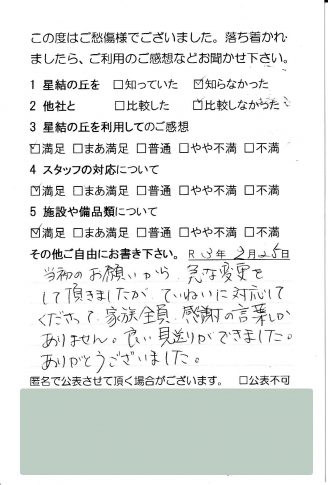 この度はご愁傷様でございました。落ち着かれ
ましたら、ご利用のご感想などお聞かせ下さい。
1 星結の丘を □知っていた ☑知らなかった
2 他社と □比較した ☑比較しなかった
3 星結の丘を利用してのご感想
☑満足 □まあ満足 □普通 □やや不満 □不満
4 スタッフの対応について
☑満足 □まあ満足 □普通 □やや不満 □不満
5 施設や備品類について
☑満足 □まあ満足 □普通 □やや不満 □不満
その他ご自由にお書き下さい。 R 3年 2月25日
当初のお願いから、急な変更を
して頂きましたが、ていねいに対応して
くださって、家族全員、感謝の言葉しか
ありません。良い見送りができました。
ありがとうございました。
匿名で公表させて頂く場合がございます。 □公表不可